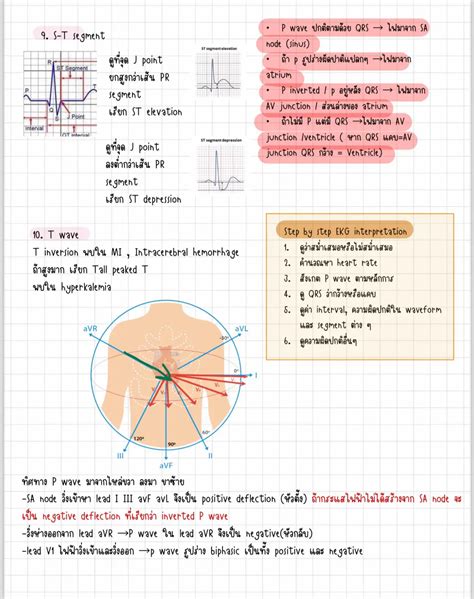 9. S-T segment
ดูที่จุด J point
ยกสูงกว่าเส้น PR
segment
เรียก ST elevation
ST segment elevation
ST Segment
P
R
T
Q
S
J Point
Interval
QT Interval
ดูที่จุด J point
ลงต่ำกว่าเส้น PR
segment
เรียก ST depression
ST segment depression
• P wave ปกติตามด้วย QRS → ไฟมาจาก SA
node (sinus)
• ถ้า p รูปร่างผิดปกติแปลกๆ →ไฟมาจาก
atrium
• P inverted / p อยู่หลัง QRS → ไฟมาจาก
AV junction / ส่วนล่างของ atrium
• ถ้าไม่มี P แต่มี QRS →ไฟมาจาก AV
junction /ventricle ( หาก QRS แคบ=AV
junction QRS กว้าง = Ventricle)
10. T wave
T inversion พบใน MI , Intracerebral hemorrhage
ถ้าสูงมาก เรียก Tall peaked T
พบใน hyperkalemia
Step by step EKG interpretation
1. ดูว่าสม่ำเสมอหรือไม่สม่ำเสมอ
2. คำนวณหา heart rate
3. สังเกต P wave ตามหลักการ
4. ดู QRS ว่ากว้างหรือแคบ
5. ดูค่า interval, ความผิดปกติใน waveform
และ segment ต่าง ๆ
6. ดูความผิดปกติอื่นๆ
aVR
aVL
-30°
0°
I
120°
90°
60°
III
aVF
II
ทิศทาง P wave มาจากไหล่ขวา ลงมา ขาซ้าย
-SA node วิ่งเข้าหา lead I III avf avl จึงเป็น positive deflection (หัวตั้ง) ถ้ากระแสไฟฟ้าไม่ได้สร้างจาก SA node จะ
เป็น negative deflection ที่เรียกว่า inverted P wave
-วิ่งห่างออกจาก lead aVR →P wave ใน lead aVR จึงเป็น negative(หัวกลับ)
-lead V1 ไฟฟ้าวิ่งเข้าและวิ่งออก →p wave รูปร่าง biphasic เป็นทั้ง positive และ negative